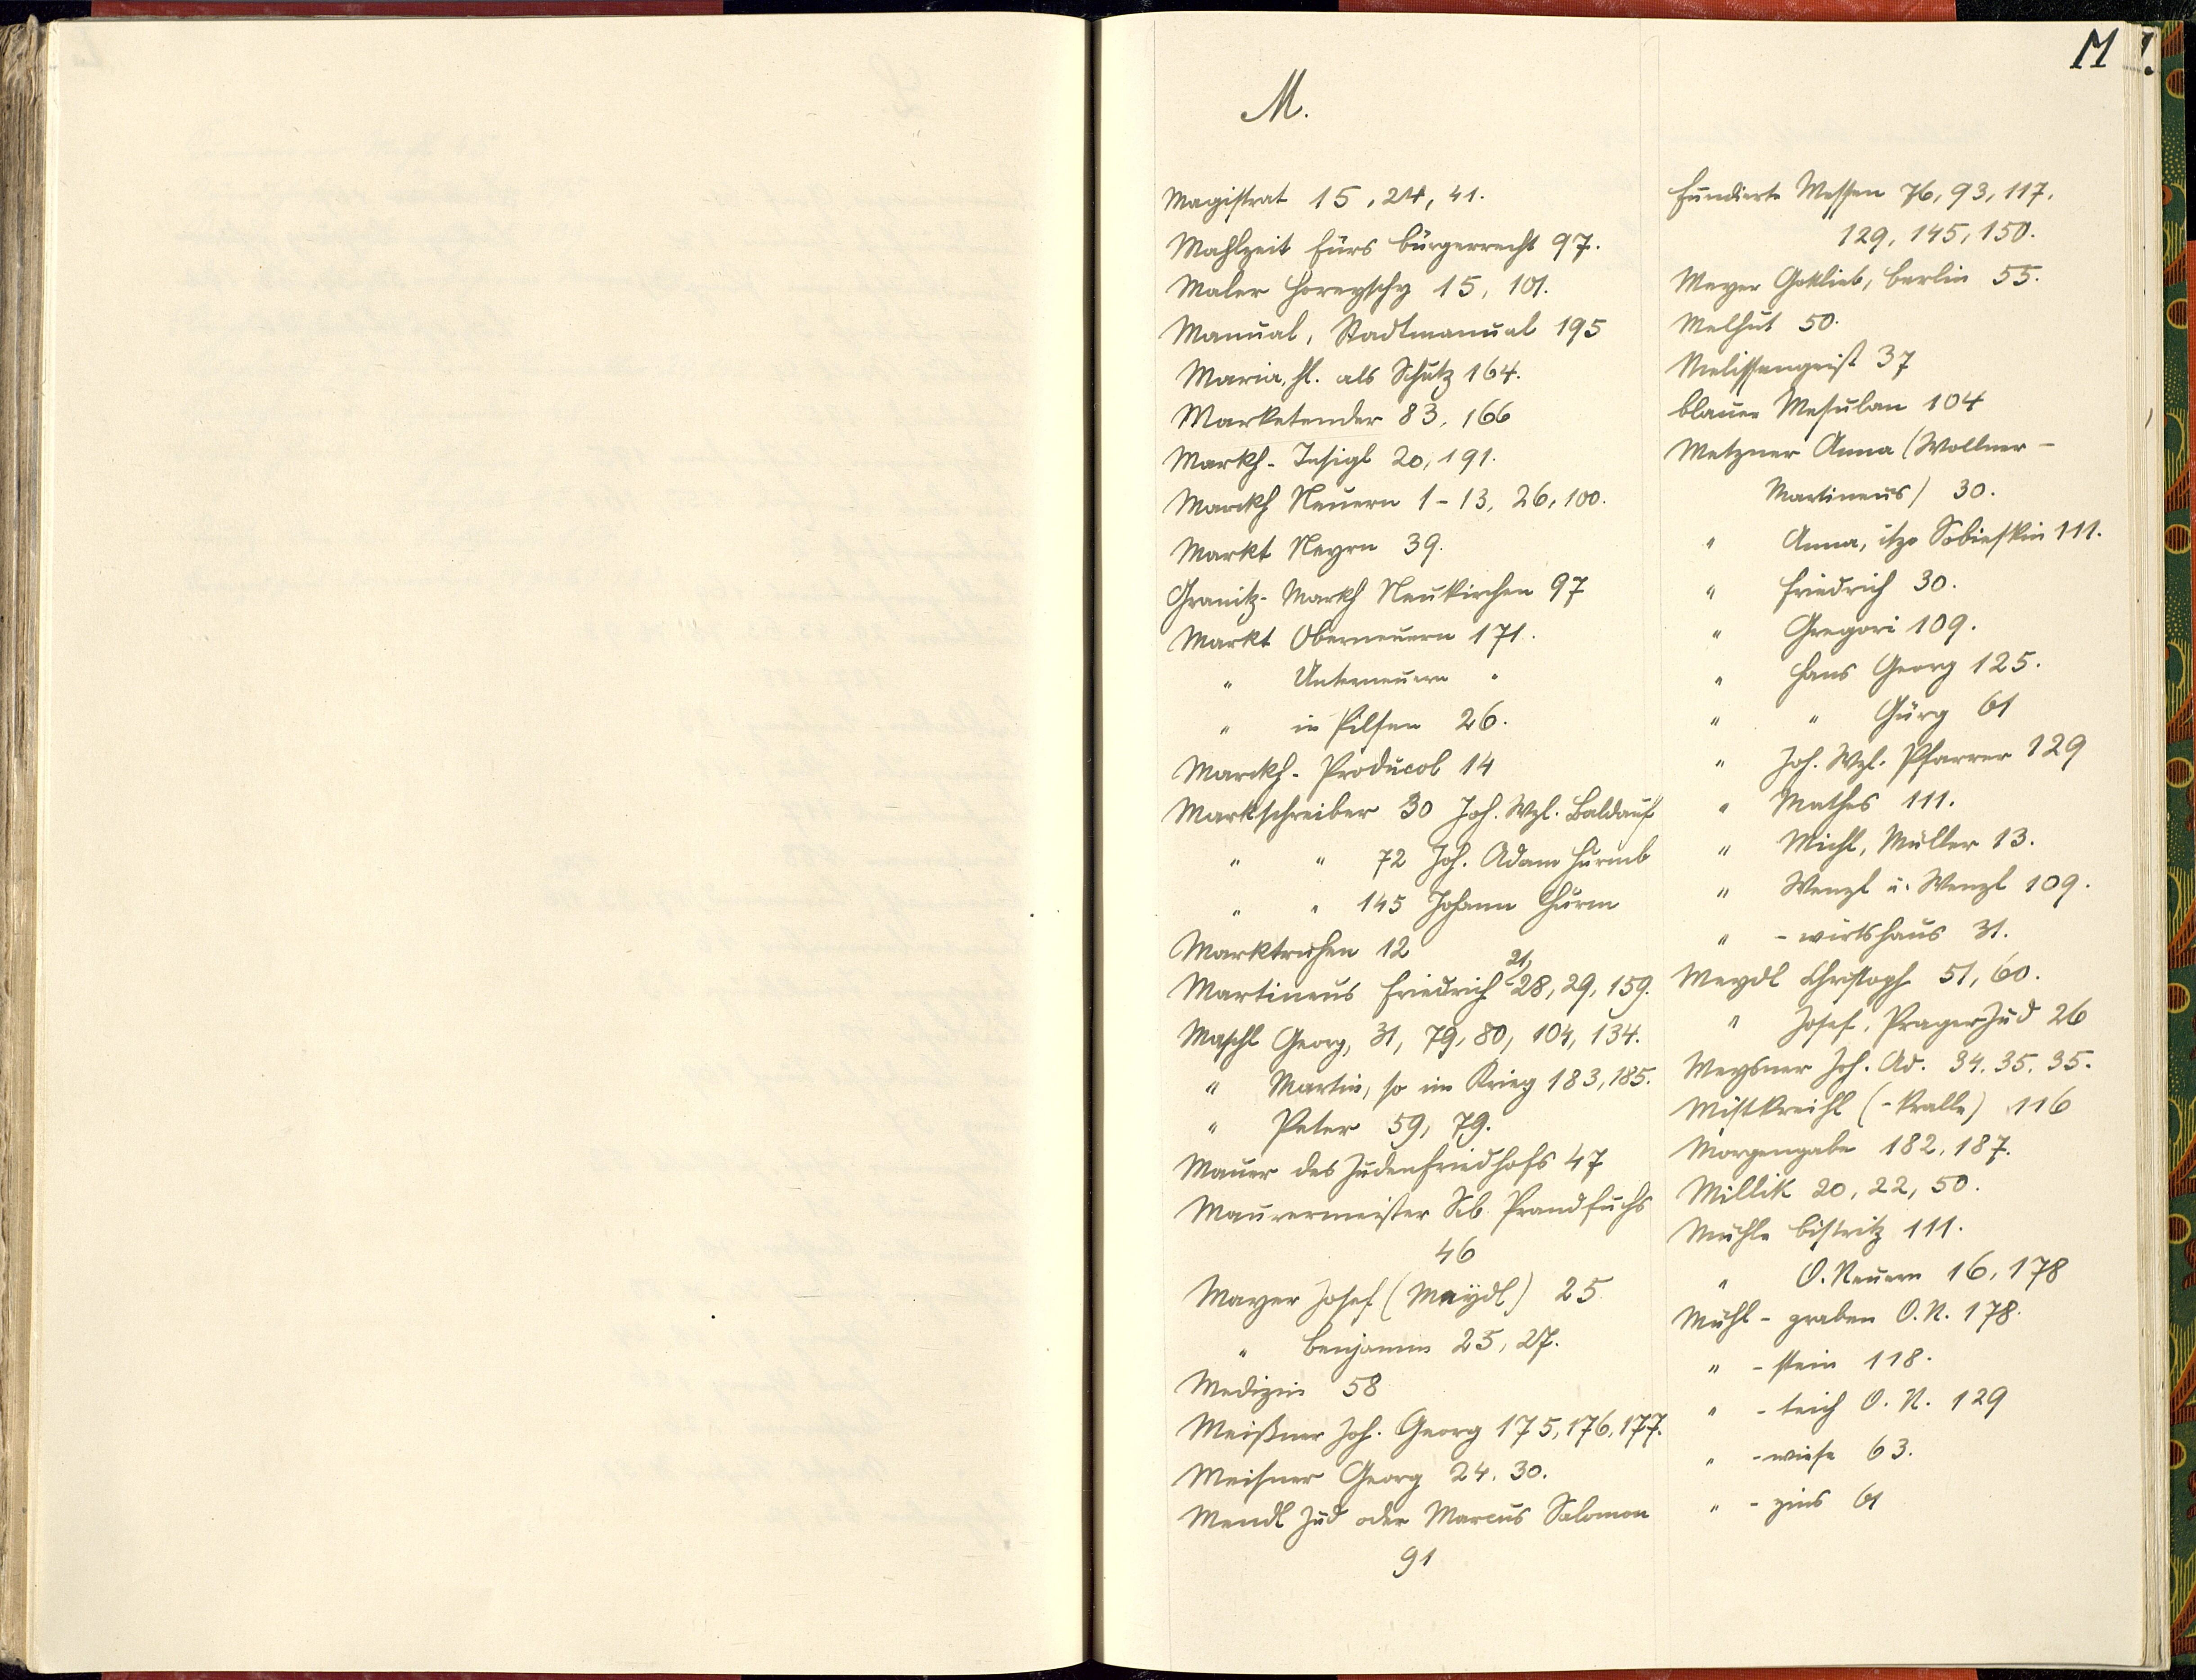 M
M.
Magistrat 15, 24, 41.
Mahlzeit fürs Bürgerrecht 97.
Maler Horeyschy 15, 101.
Manual, Stadtmanual 195
Maria, hl. als Schutz 164.
Marketender 83, 166
Markh-Insigl 20, 191.
Marckh Neuern 1-13, 26, 100.
Markt Neyrn 39.
Granitz-Markh Neukirchen 97
Markt Oberneuern 171.
" Unterneuern "
" in Pilsen 26.
Marckh-Producol 14
Markschreiber 30 Joh. Wzl. Baldauf
" " 72 Joh. Adam Hurmb
" " 145 Johann Thurm
Marktruhen 12
Martineus Friedrich 21, 28, 29, 159.
Maschl Georg, 31, 79, 80, 104, 134.
" Martin, so im Krieg 183, 185.
" Peter 59, 79.
Mauer des Judenfriedhofs 47
Maurermeister Seb. Prandfuchs
46
Mayer Josef (Maydl) 25
" Benjamin 25, 27.
Medizin 58
Meißner Joh. Georg 175, 176, 177.
Meisner Georg 24, 30.
Mendl Jud oder Marcus Salomon
91
Fundierte Messen 76, 93, 117,
129, 145, 150.
Meyer Gottlieb, Berlin 55.
Melhut 50.
Melissengeist 37
blauer Mesulan 104
Metzner Anna (Wollner-
Martineus) 30.
" Anna, itzo Sobieskin 111.
" Friedrich 30.
" Gregori 109.
" Hans Georg 125.
" " Gürg 61
" Joh. Wzl. Pfarrer 129
" Mathes 111.
" Michl, Müller 13.
" Wenzl u. Wenzl 109.
" -wirtshaus 31.
Meydl Christoph 51, 60.
" Josef, Prager Jud 26
Meysner Joh. Ad. 34, 35, 35.
Mistkreihl (-kralle) 116
Morgengabe 182, 187.
Millik 20, 22, 50.
Mühle Bistritz 111.
" O. Neuern 16, 178
Mühl-graben O. N. 178.
" -stein 118.
" -teich O. N. 129
" -wiese 63.
" -zins 61